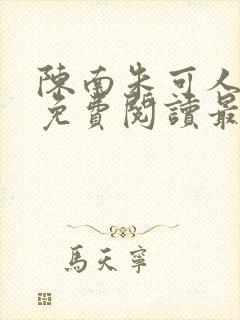 陳南朱可人
免費閱讀最
馬天寧